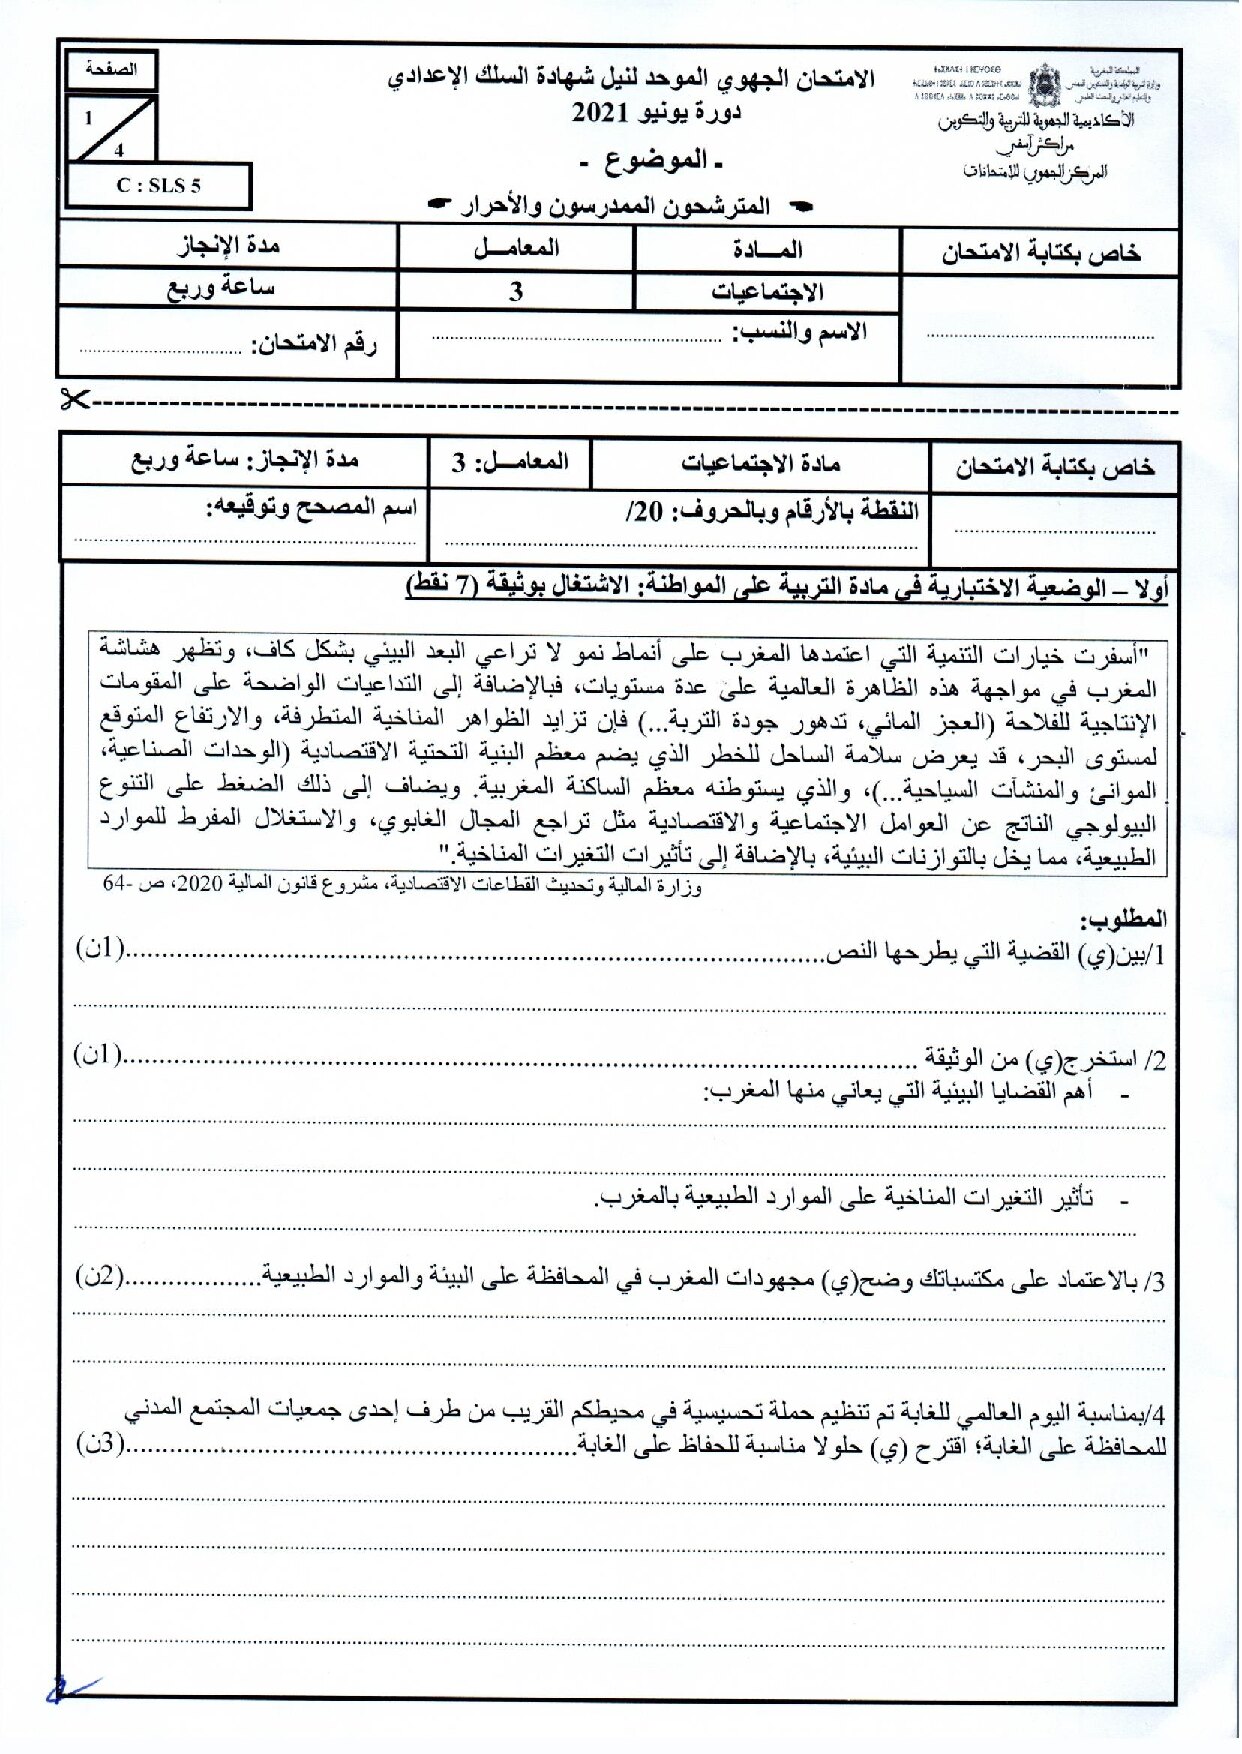 الصفحة
1
4
C : SLS 5
الامتحان الجهوي الموحد لنيل شهادة السلك الإعدادي
دورة يونيو 2021
ـ الموضوع -
المترشحون الممدرسون والأحرار
المملكة المغربية
الأكاديمية الجهوية للتربية والتكوين
مراكش آسفي
المركز الجهوي للامتحانات
خاص بكتابة الامتحان
المـــادة
المعامــل
مدة الإنجاز
الاجتماعيات
3
ساعة وربع
الاسم والنسب: ................
رقم الامتحان: ................
خاص بكتابة الامتحان
مادة الاجتماعيات
المعامــل: 3
مدة الإنجاز: ساعة وربع
النقطة بالأرقام وبالحروف: 20/
اسم المصحح وتوقيعه:
أولا – الوضعية الاختبارية في مادة التربية على المواطنة: الاشتغال بوثيقة (7 نقط)
"أسفرت خيارات التنمية التي اعتمدها المغرب على أنماط نمو لا تراعي البعد البيئي بشكل كاف، وتظهر هشاشة
المغرب في مواجهة هذه الظاهرة العالمية على عدة مستويات، فبالإضافة إلى التداعيات الواضحة على المقومات
الإنتاجية للفلاحة (العجز المائي، تدهور جودة التربة...) فإن تزايد الظواهر المناخية المتطرفة، والارتفاع المتوقع
لمستوى البحر، قد يعرض سلامة الساحل للخطر الذي يضم معظم البنية التحتية الاقتصادية (الوحدات الصناعية،
الموانئ والمنشآت السياحية...)، والذي يستوطنه معظم الساكنة المغربية. ويضاف إلى ذلك الضغط على التنوع
البيولوجي الناتج عن العوامل الاجتماعية والاقتصادية مثل تراجع المجال الغابوي، والاستغلال المفرط للموارد
الطبيعية، مما يخل بالتوازنات البيئية، بالإضافة إلى تأثيرات التغيرات المناخية."
وزارة المالية وتحديث القطاعات الاقتصادية، مشروع قانون المالية 2020، ص -64
المطلوب:
1/بين(ي) القضية التي يطرحها النص................(1ن)
2/ استخرج(ي) من الوثيقة ................(1ن)
- أهم القضايا البيئية التي يعاني منها المغرب:
- تأثير التغيرات المناخية على الموارد الطبيعية بالمغرب.
3/ بالاعتماد على مكتسباتك وضح(ي) مجهودات المغرب في المحافظة على البيئة والموارد الطبيعية................(2ن)
4/بمناسبة اليوم العالمي للغابة تم تنظيم حملة تحسيسية في محيطكم القريب من طرف إحدى جمعيات المجتمع المدني
للمحافظة على الغابة؛ اقترح (ي) حلولا مناسبة للحفاظ على الغابة................(3ن)